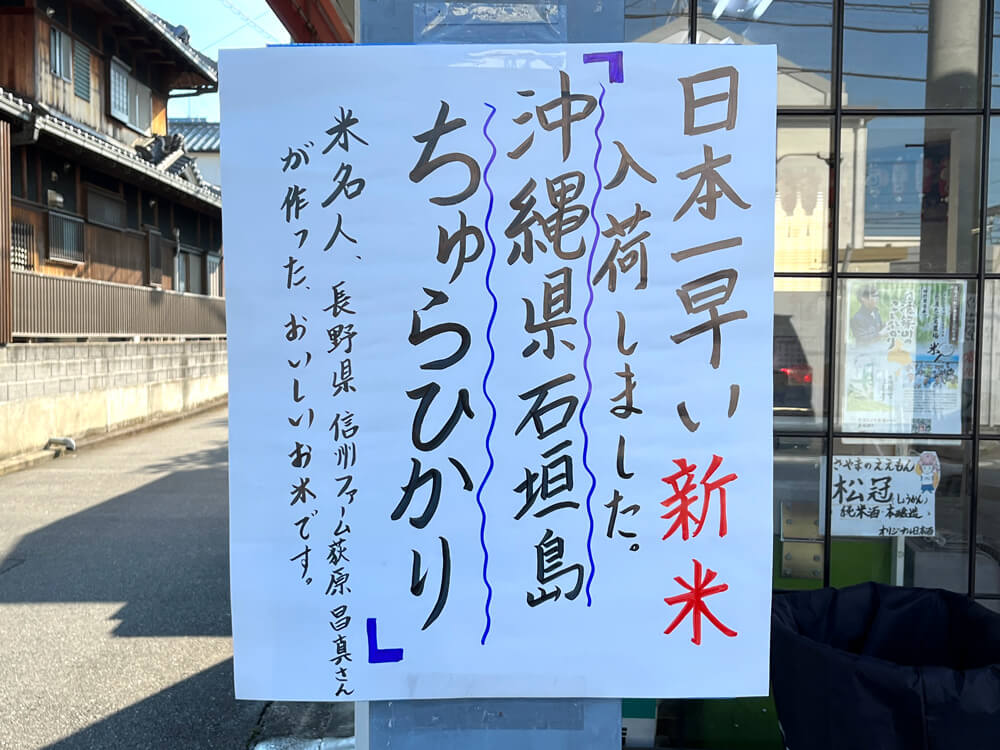 日本一早い新米
入荷しました。
「沖縄県石垣島
ちゅらひかり」
米名人、長野県信州ファーム荻原昌真さん
が作った、おいしいお米です。
さやまのええもん
松冠(しょうかん)
純米酒・本醸造
オリジナル日本酒